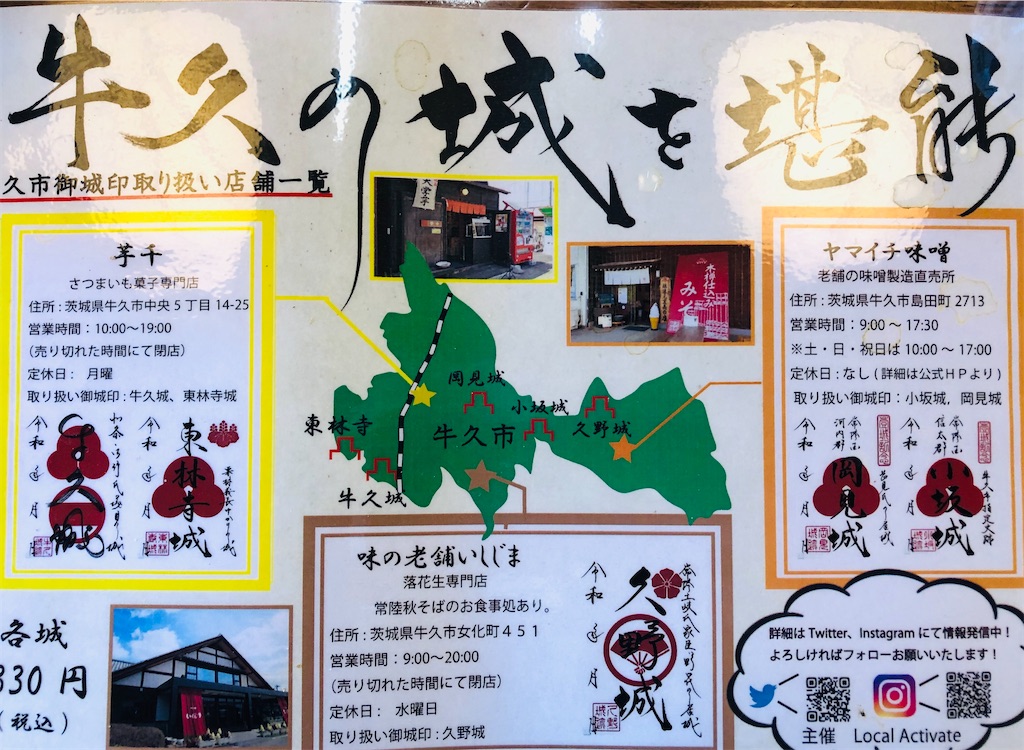 牛久の城を堪能
久市御城印取り扱い店舗一覧
芋千
さつまいも菓子専門店
住所:茨城県牛久市中央5丁目14-25
営業時間:10:00〜19:00
(売り切れた時間にて閉店)
定休日: 月曜
取り扱い御城印:牛久城、東林寺城
令和 月
牛久城
令和 月
東林寺城
木樽仕込み
みそ
ヤマイチ味噌
老舗の味噌製造直売所
住所:茨城県牛久市島田町2713
営業時間:9:00〜17:30
※土・日・祝日は10:00〜17:00
定休日:なし(詳細は公式HPより)
取り扱い御城印:小坂城，岡見城
令和 月
岡見城
令和 月
小坂城
岡見城
小坂城
東林寺
牛久市
久野城
牛久城
味の老舗いしじま
落花生専門店
常陸秋そばのお食事処あり。
住所:茨城県牛久市女化町451
営業時間:9:00〜20:00
(売り切れた時間にて閉店)
定休日: 水曜日
取り扱い御城印:久野城
令和 月
久野城
各城
330円
(税込)
詳細はTwitter、Instagramにて情報発信中!
よろしければフォローお願いいたします!
主催 Local Activate